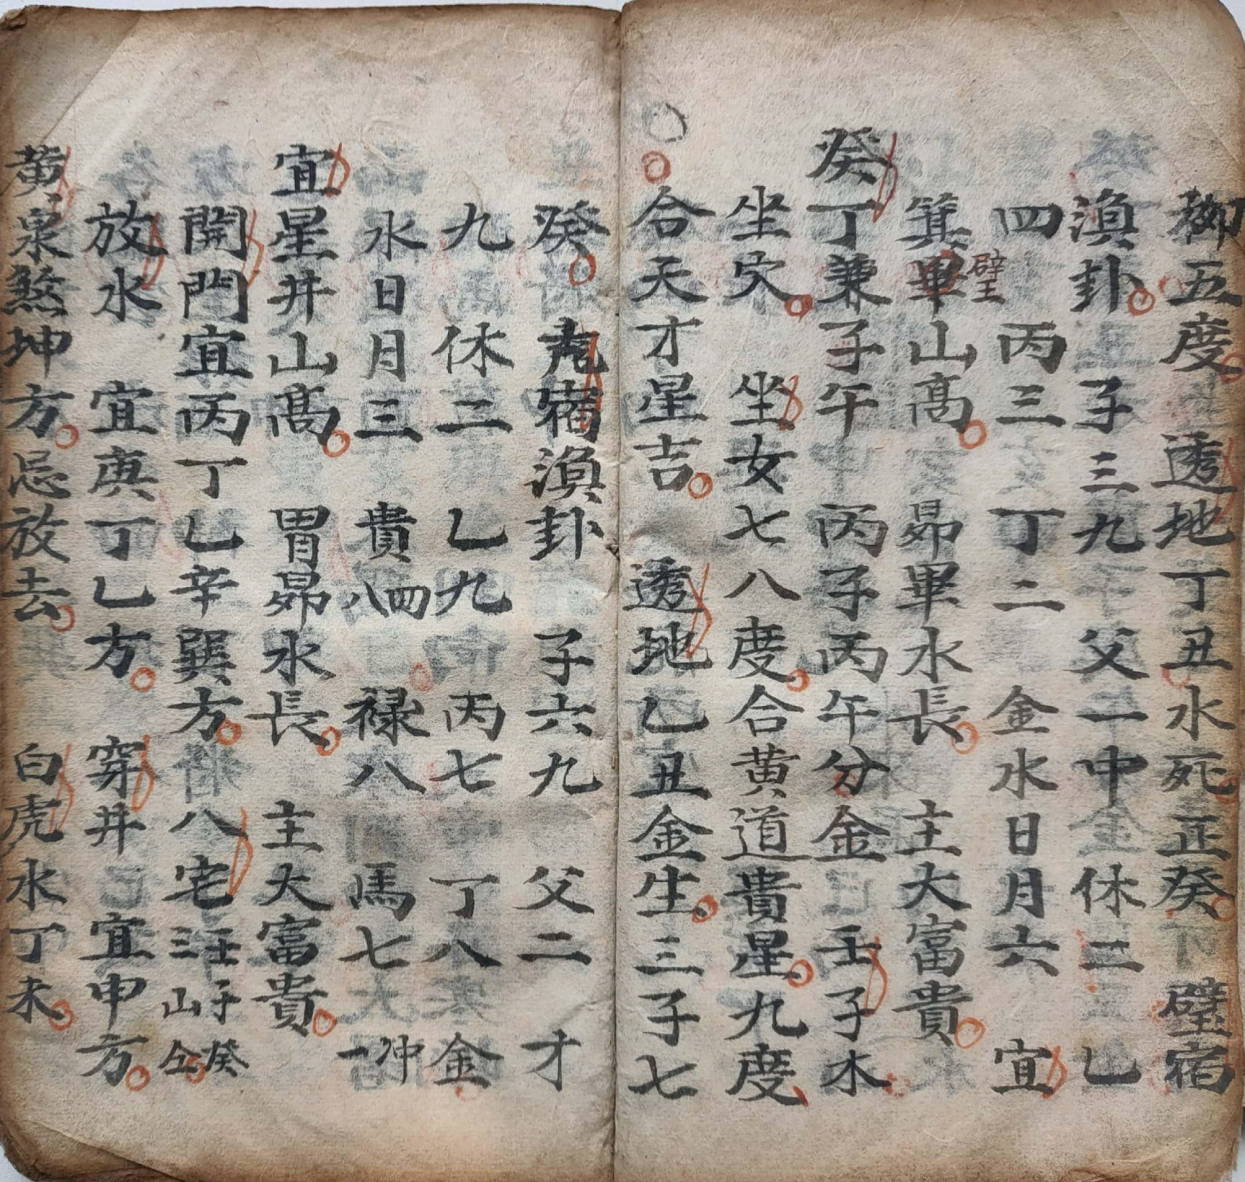 柳五度透地丁丑水死正癸下壁宿
滇卦子三九父一中休二乙
四丙三丁二金水日月六宜
箕畢山高昴畢水長主大富貴
壁王
癸丁兼子午丙子丙午分金壬子木
坐穴坐女七八度合黄道貴星九度
合天才星吉透地乙丑金生三子七
癸鬼宿滇卦子六九父二才
九休二乙九丙七丁八金
水日月三貴四八禄八馬七冲一
宜星井山高胃昴水長主大富貴
開門宜丙丁乙辛巽方八宅三山壬子癸仝
放水宜庚丁乙方穿井宜申方
黄泉煞坤方忌放去白虎水丁未